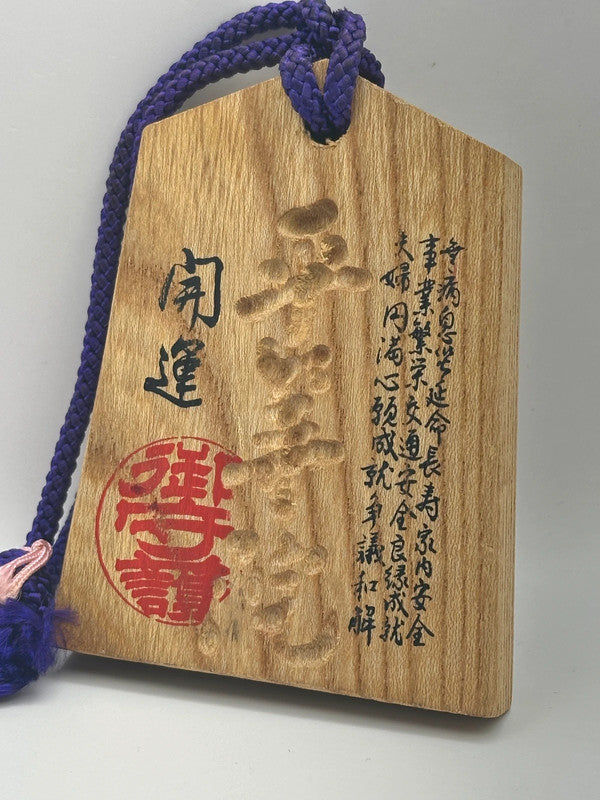 無病息災延命長寿家内安全
事業繁栄交通安全良縁成就
夫婦円満心願成就争議和解
平等院
開運
御守護